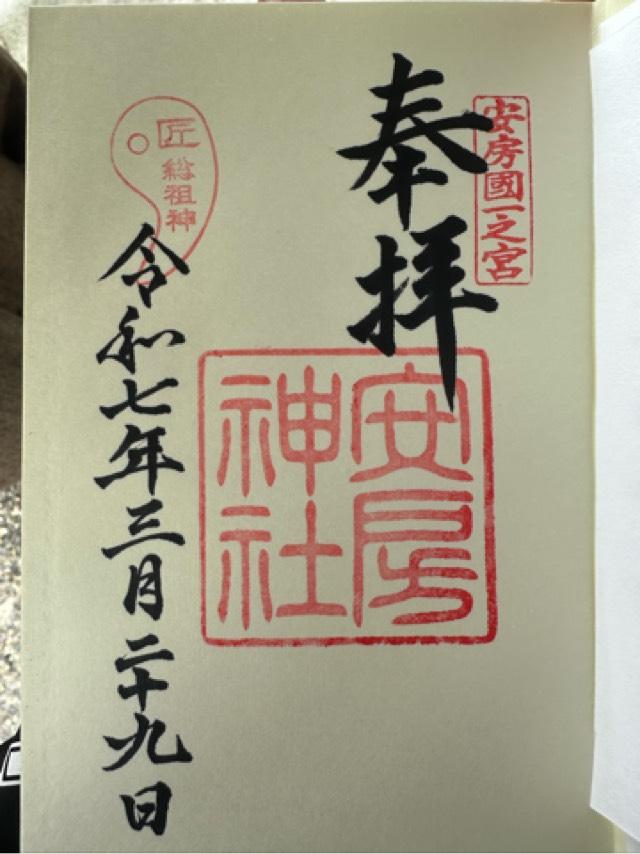 安房國一之宮
奉拝
安房
神社
匠
総祖神
令和七年三月二十九日